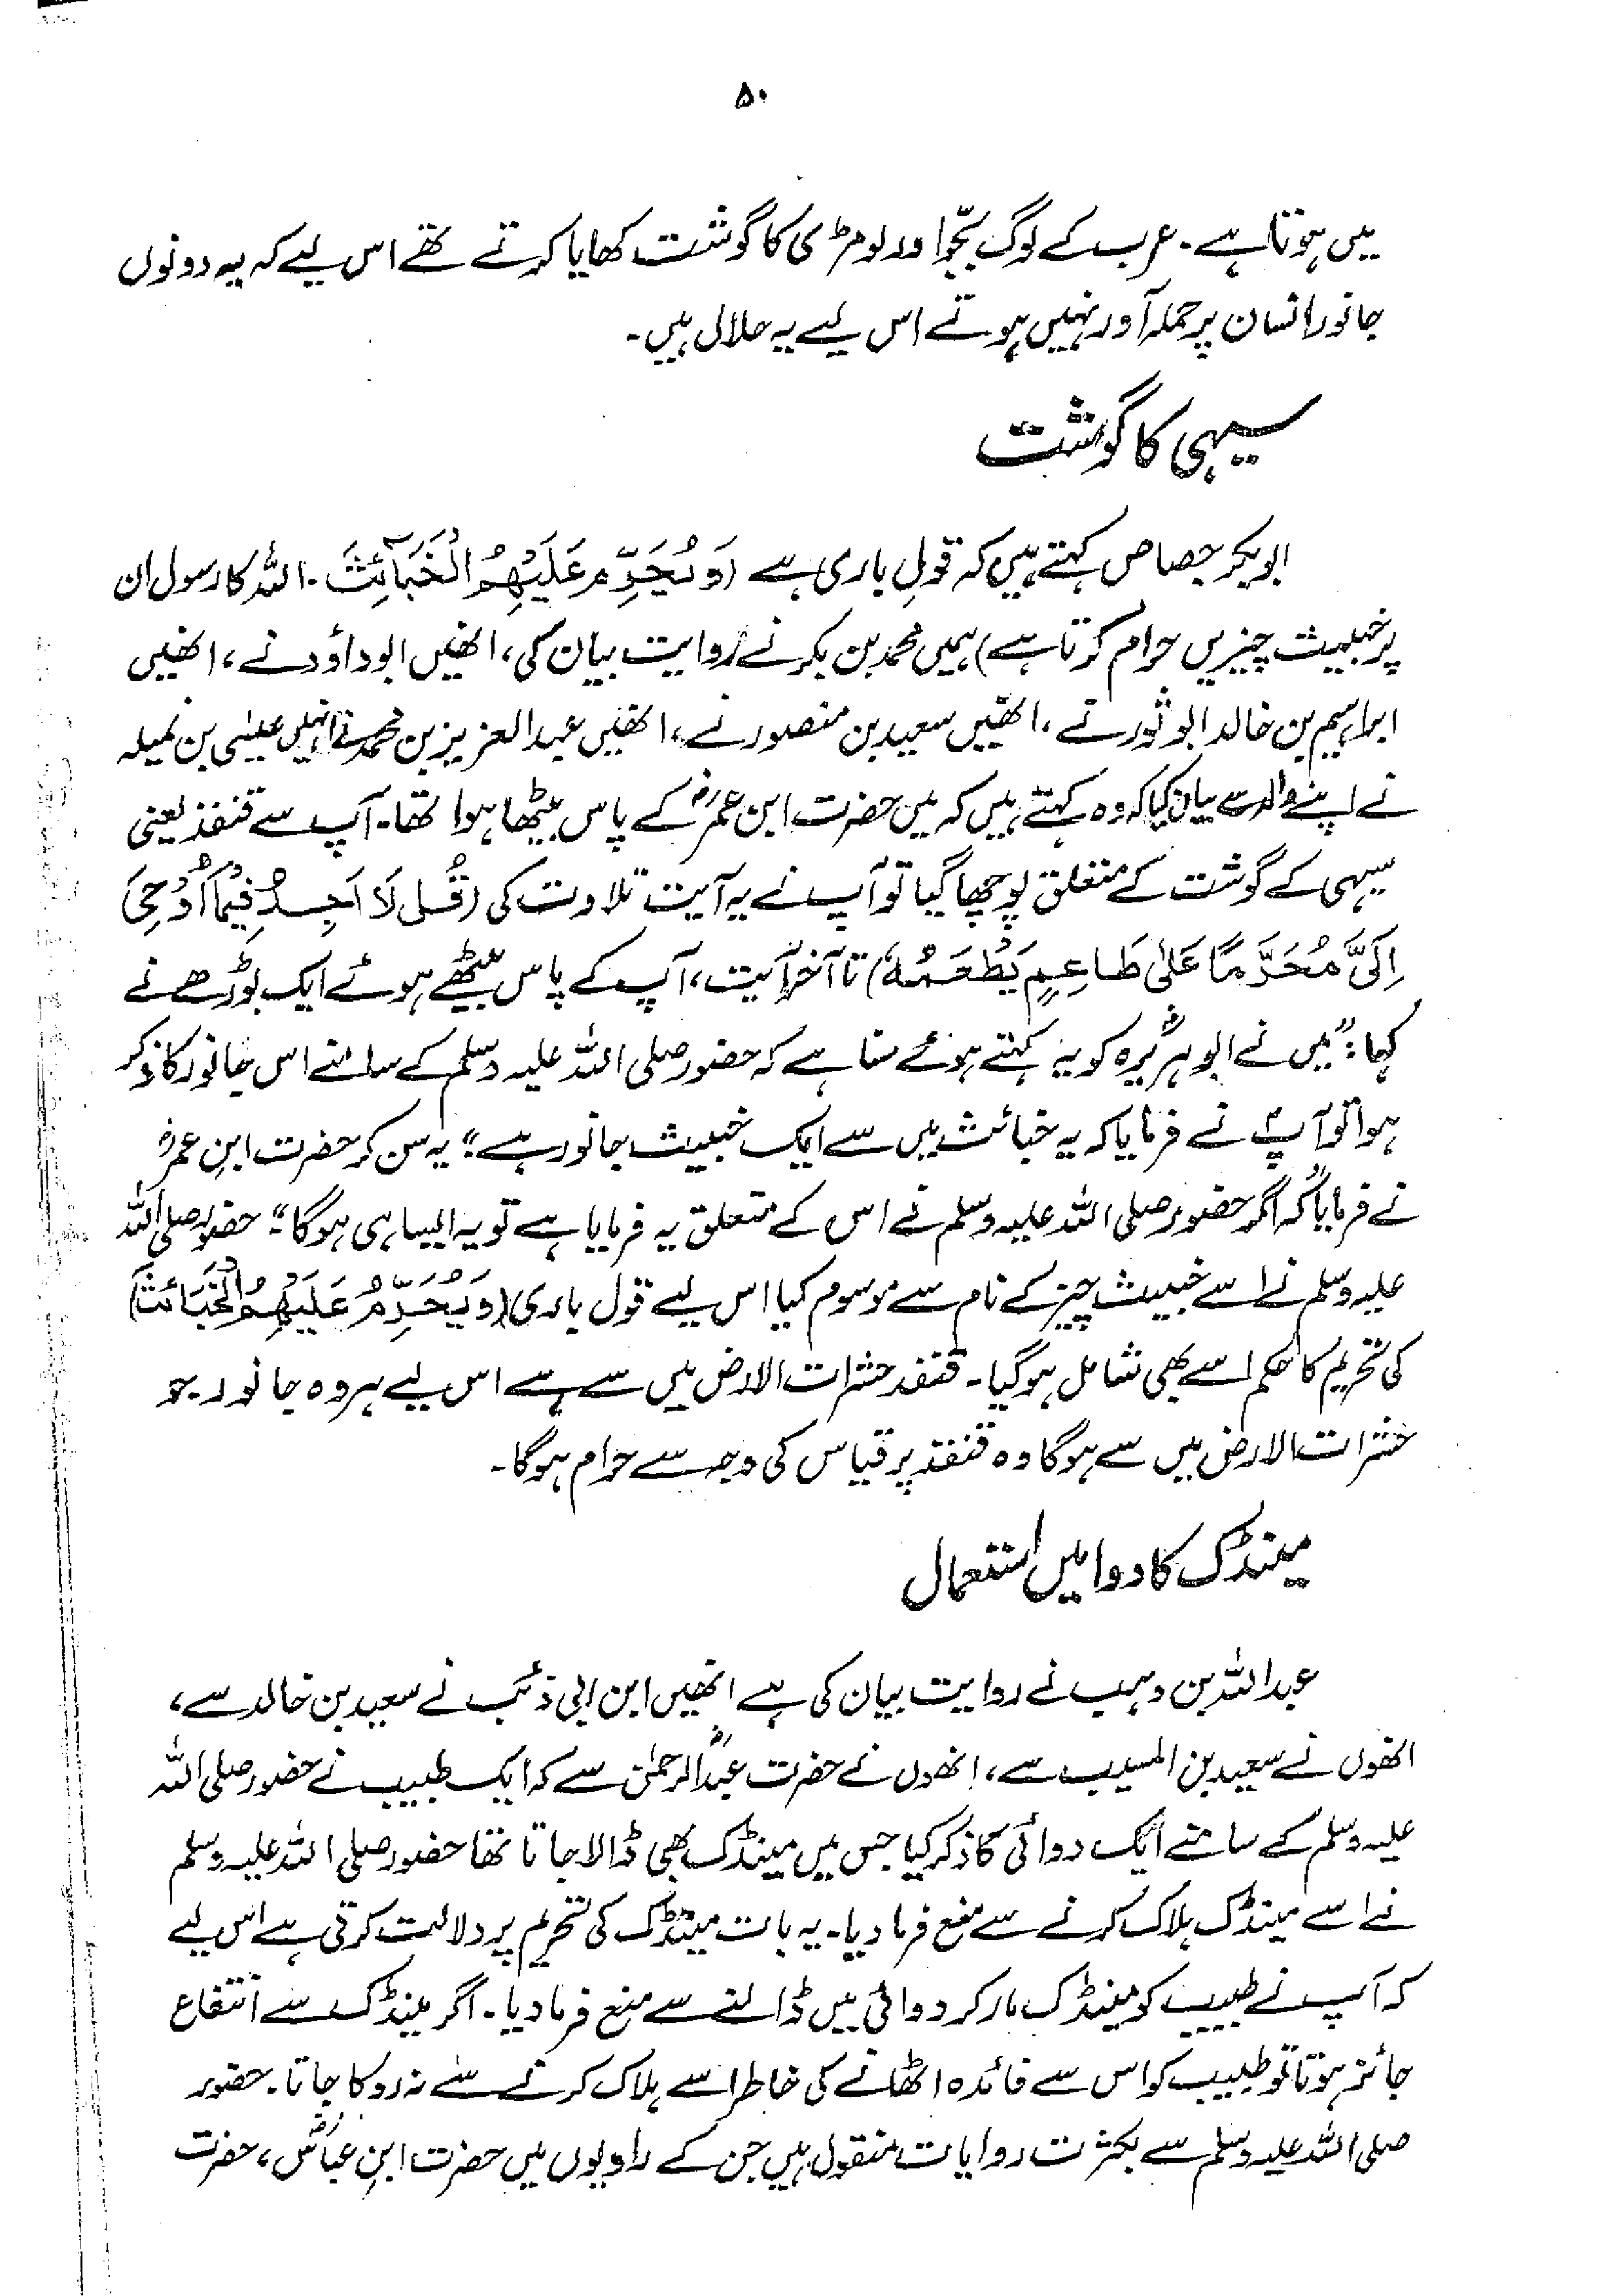 ۵۰
میں ہوتا ہے۔ عرب کے لوگ بجّو اور لومڑی کا گوشت کھایا کرتے تھے اس لیے کہ یہ دونوں
جانور انسان پر حملہ آور نہیں ہوتے اس لیے یہ حلال ہیں۔
سیہی کا گوشت
ابوبکر جصاص کہتے ہیں کہ قولِ باری ہے (وَيُحَرِّمُ عَلَيْهِمُ الْخَبَآئِثَ۔ اللہ کا رسول ان
پر خبیث چیزیں حرام کرتا ہے) ہمیں محمد بن بکر نے روایت بیان کی، انھیں ابوداؤد نے، انھیں
ابراہیم بن خالد ابو ثور نے، انھیں سعید بن منصور نے، انھیں عبدالعزیز بن محمد نے انہیں عیسٰی بن نمیلہ
نے اپنے والد سے بیان کیا کہ وہ کہتے ہیں کہ میں حضرت ابن عمرؓ کے پاس بیٹھا ہوا تھا۔ آپ سے قنفذ یعنی
سیہی کے گوشت کے متعلق پوچھا گیا تو آپ نے یہ آیت تلاوت کی (قُل لَا اَجِدُ فِيْمَا اُوْحِيَ
اِلَيَّ مُحَرَّمًا عَلیٰ طَاعِمٍ يَطْعَمُهٗ) تا آخر آیت، آپ کے پاس بیٹھے ہوئے ایک بوڑھے نے
کہا: "میں نے ابوہریرہؓ کو یہ کہتے ہوئے سنا ہے کہ حضور صلی اللہ علیہ وسلم کے سامنے اس جانور کا ذکر
ہوا تو آپؐ نے فرمایا کہ یہ خبائث میں سے ایک خبیث جانور ہے" یہ سن کر حضرت ابنِ عمرؓ
نے فرمایا "کہ اگر حضور صلی اللہ علیہ وسلم نے اس کے متعلق یہ فرمایا ہے تو یہ ایسا ہی ہوگا" حضور صلی اللہ
علیہ وسلم نے اسے خبیث چیز کے نام سے موسوم کیا اس لیے قول باری (وَيُحَرِّمُ عَلَيْهِمُ الْخَبَائِثَ)
کی تحریم کا حکم اسے بھی شامل ہوگیا۔ قنفذ حشرات الارض میں سے ہے اس لیے ہر وہ جانور جو
حشرات الارض میں سے ہوگا وہ قنفذ پر قیاس کی وجہ سے حرام ہوگا۔
مینڈک کا دوا میں استعمال
عبداللہ بن وہب نے روایت بیان کی ہے انھیں ابن ابی ذئب نے سعید بن خالد سے،
انھوں نے سعید بن المسیب سے، انھوں نے حضرت عبدالرحمٰنؓ سے کہ ایک طبیب نے حضور صلی اللہ
علیہ وسلم کے سامنے ایک دوائی کا ذکر کیا جس میں مینڈک بھی ڈالا جاتا تھا حضور صلی اللہ علیہ وسلم
نے اسے مینڈک ہلاک کرنے سے منع فرما دیا۔ یہ بات مینڈک کی تحریم پر دلالت کرتی ہے اس لیے
کہ آپ نے طبیب کو مینڈک مار کر دوائی میں ڈالنے سے منع فرما دیا۔ اگر مینڈک سے انتفاع
جائز ہوتا تو طبیب کو اس سے فائدہ اٹھانے کی خاطر اسے ہلاک کرنے سے نہ روکا جاتا۔ حضور
صلی اللہ علیہ وسلم سے بکثرت روایات منقول ہیں جن کے راویوں میں حضرت ابنِ عباسؓ، حضرت